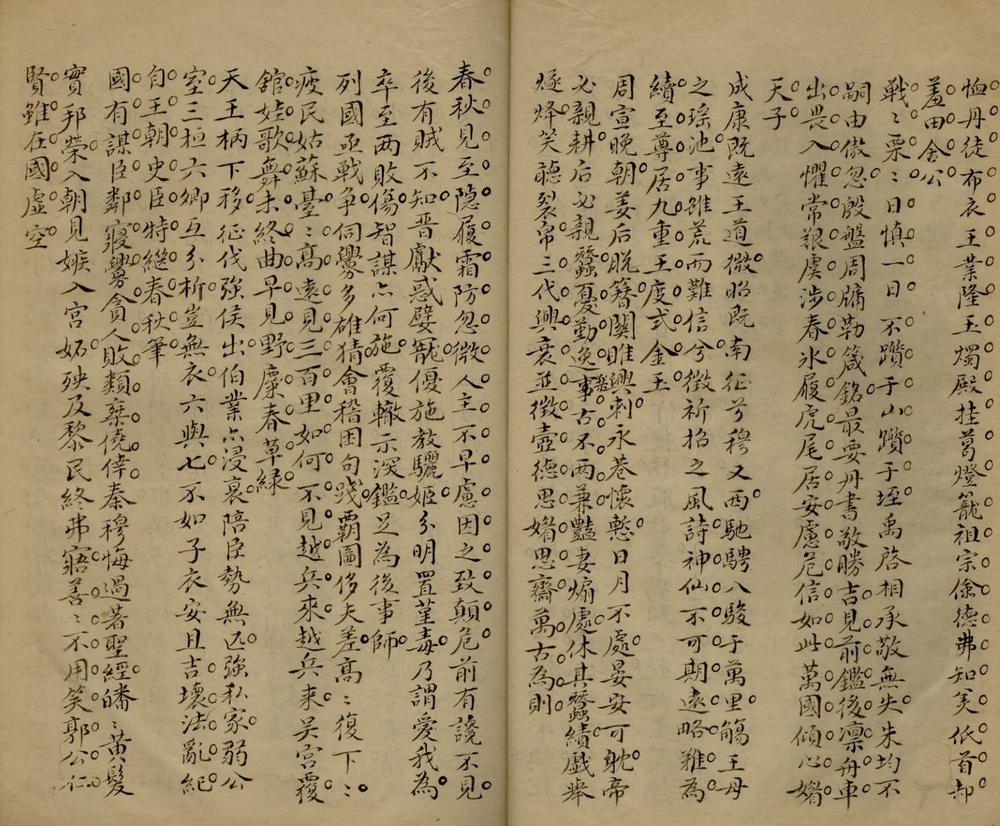 恤丹徒布衣王業隆玉燭殿挂葛燈籠祖宗儉德弗知美低首却
羞田舍公
戰〻栗〻日慎一日不躓于山躓于垤禹啓相承敬無失朱均不
嗣由傲忽殷盤周牖勒箴銘最要丹書敬勝吉見前鑑後凛舟車
出畏入懼常艱虞涉春氷履虎尾居安慮危信如此萬國傾心媚
天子
成康既遠王道微昭既南征兮穆又西馳騁八駿于萬里觴王母
之瑤池事雖荒而難信兮徵祈招之風詩神仙不可期遠略難為
續至尊居九重王度式金玉
周宣晚朝姜后脫簪關雎興刺永巷懷慙日月不處晏安可耽帝
必親耕后必親蠶憂勤逸事古不兩兼豔妻煽處休其蠶績戲舉
燧烽笑聽裂帛三代興衰並徵壺德思媚思齋萬古為則
春秋見至隱履霜防忽微人主不早慮因之致顛危前有讒不見
後有賊不知晋獻惑嬖寵優施教驪姬分明置堇毒乃謂愛我為
卒至兩敗傷智謀亦何施覆轍示深鑑足為後事師
列國亟戰争伺釁多雄猜會稽困句踐覇圖侈夫差高〻復下〻
疲民姑蘇臺〻高遠見三百里如何不見越兵來越兵来吴宮覆
舘娃歌舞未終曲早見野麋春草緑
天王柄下移征伐強侯出伯業亦浸衰陪臣勢無匹強私家弱公
室三桓六卿互分析豈無衣六與七不如子衣安且吉壞法亂紀
自王朝史臣特繼春秋筆
國有謀臣鄰寢釁貪人敗類棄僥倖秦穆悔過著聖經皤〻黃髮
實邦榮入朝見嫉入宮妬殃及黎民終弗寤善〻不用笑郭公仁
賢雖在國虛空